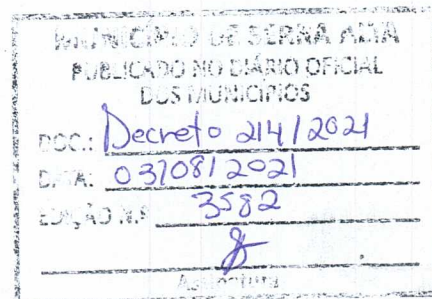 MUNICÍPIO DE SERRA ALTA
PUBLICADO NO DIÁRIO OFICIAL
DOS MUNICÍPIOS
DOC.: Decreto 214/2021
DATA: 03/08/2021
EDIÇÃO N.º 3582
Assinatura